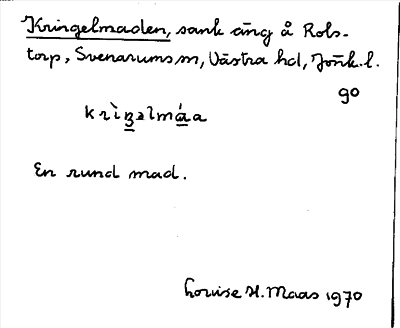 Kringelmaden, sank äng å Rols-
torp, Svenarums sn, Västra hd, Jönk. l.
go
krìŋəlmáa
En rund mad.
Louise H. Maas 1970